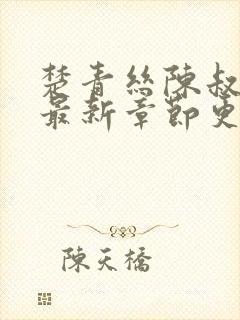 楚青絲陳叔
最新章節更
陳天橋